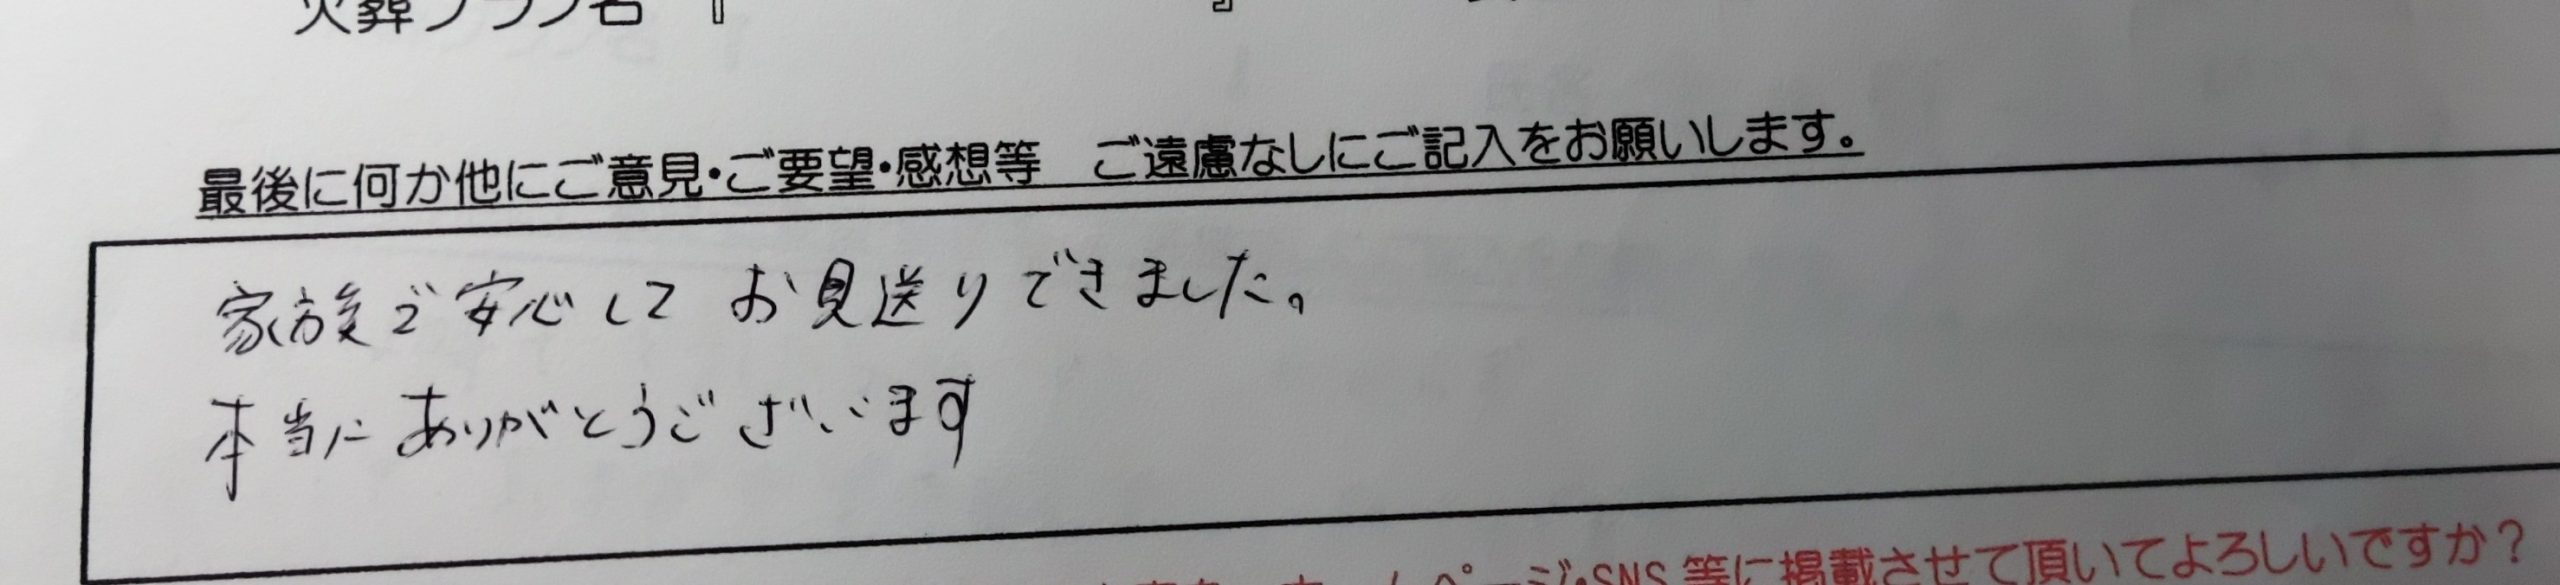 火葬プラン名『　』
最後に何か他にご意見・ご要望・感想等　ご遠慮なしにご記入をお願いします。
家族で安心して お見送りできました。
本当に ありがとうございます
ホームページ・SNS 等に掲載させて頂いてよろしいですか？